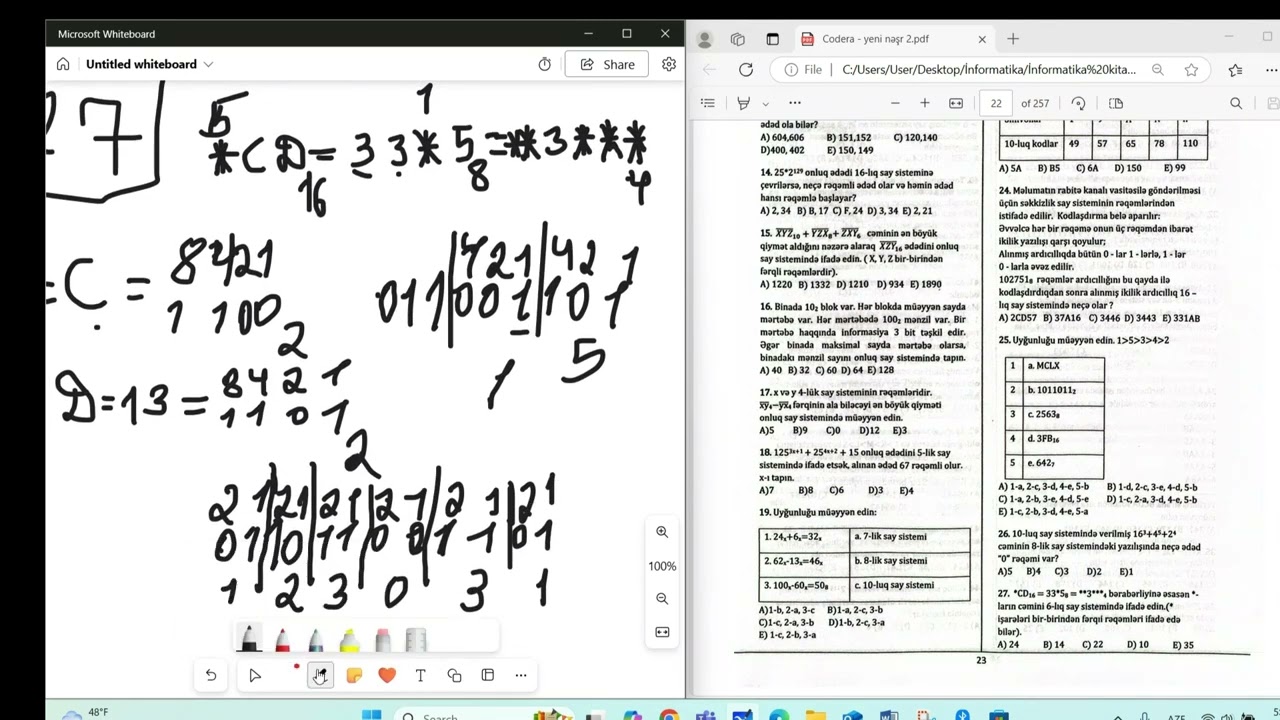 Microsoft Whiteboard
Untitled whiteboard
Share
7
5 1
*CD = 33*5 = **3***
16 8 4
C = 8421
1 100
2
D = 13 = 8421
1101
2
421 421
011 001 101
1 5
21 21 21 21 21 21
01 10 11 00 11 01
1 2 3 0 3 1
100%
48°F
Search
Codera - yeni nəşr 2.pdf
File C:/Users/User/Desktop/İnformatika/İnformatika%20kita...
22 of 257
ədəd ola bilər?
A) 604,606 B) 151,152 C) 120,140
D)400, 402 E) 150, 149
14. 25*2¹²⁹ onluq ədədi 16-lıq say sisteminə
çevrilərsə, neçə rəqəmli ədəd olar və həmin ədəd
hansı rəqəmlə başlayar?
A) 2, 34 B) B, 17 C) F, 24 D) 3, 34 E) 2, 21
15. XYZ₁₀ + YZX₈ + ZXY₆ cəminin ən böyük
qiymət aldığını nəzərə alaraq XZY₁₆ ədədini onluq
say sistemində ifadə edin. ( X, Y, Z bir-birindən
fərqli rəqəmlərdir).
A) 1220 B) 1332 D) 1210 D) 934 E) 1890
16. Binada 10₂ blok var. Hər blokda müəyyən sayda
mərtəbə var. Hər mərtəbədə 100₂ mənzil var. Bir
mərtəbə haqqında informasiya 3 bit təşkil edir.
Əgər binada maksimal sayda mərtəbə olarsa,
binadakı mənzil sayını onluq say sistemində tapın.
A) 40 B) 32 C) 60 D) 64 E) 128
17. x və y 4-lük say sisteminin rəqəmləridir.
xy₄−yx₄ fərqinin ala biləcəyi ən böyük qiyməti
onluq say sistemində müəyyən edin.
A)5 B)9 C)0 D)12 E)3
18. 125³ˣ⁺¹ + 25⁴ˣ⁺² + 15 onluq ədədini 5-lik say
sistemində ifadə etsək, alınan ədəd 67 rəqəmli olur.
x-ı tapın.
A)7 B)8 C)6 D)3 E)4
19. Uyğunluğu müəyyən edin:
1. 24ₓ+6ₓ=32ₓ a. 7-lik say sistemi
2. 62ₓ-13ₓ=46ₓ b. 8-lik say sistemi
3. 100ₓ-60ₓ=50ₓ c. 10-luq say sistemi
A)1-b, 2-a, 3-c B)1-a, 2-c, 3-b
C)1-c, 2-a, 3-b D)1-b, 2-c, 3-a
E) 1-c, 2-b, 3-a
10-luq kodlar 49 57 65 78 110
A) 5A B) B5 C) 6A D) 150 E) 99
24. Məlumatın rabitə kanalı vasitəsilə göndərilməsi
üçün səkkizlik say sisteminin rəqəmlərindən
istifadə edilir. Kodlaşdırma belə aparılır:
Əvvəlcə hər bir rəqəmə onun üç rəqəmdən ibarət
ikilik yazılışı qarşı qoyulur;
Alınmış ardıcıllıqda bütün 0 - lar 1 - lərlə, 1 - lər
0 - larla əvəz edilir.
102751₈ rəqəmlər ardıcıllığını bu qayda ilə
kodlaşdırdıqdan sonra alınmış ikilik ardıcıllıq 16 –
lıq say sistemində neçə olar ?
A) 2CD57 B) 37A16 C) 3446 D) 3443 E) 331AB
25. Uyğunluğu müəyyən edin. 1>5>3>4>2
1 a. MCLX
2 b. 1011011₂
3 c. 2563₈
4 d. 3FB₁₆
5 e. 642₇
A) 1-a, 2-c, 3-d, 4-e, 5-b B) 1-d, 2-c, 3-e, 4-d, 5-b
C) 1-a, 2-b, 3-e, 4-d, 5-e D) 1-c, 2-a, 3-d, 4-e, 5-b
E) 1-c, 2-b, 3-d, 4-e, 5-a
26. 10-luq say sistemində verilmiş 16³+4⁵+2⁴
cəminin 8-lik say sistemindəki yazılışında neçə ədəd
"0" rəqəmi var?
A)5 B)4 C)3 D)2 E)1
27. *CD₁₆ = 33*5₈ = **3***₄ bərabərliyinə əsasən *-
ların cəmini 6-lıq say sistemində ifadə edin.(*
işarələri bir-birindən fərqli rəqəmləri ifadə edə
bilər).
A) 24 B) 14 C) 22 D) 10 E) 35
23